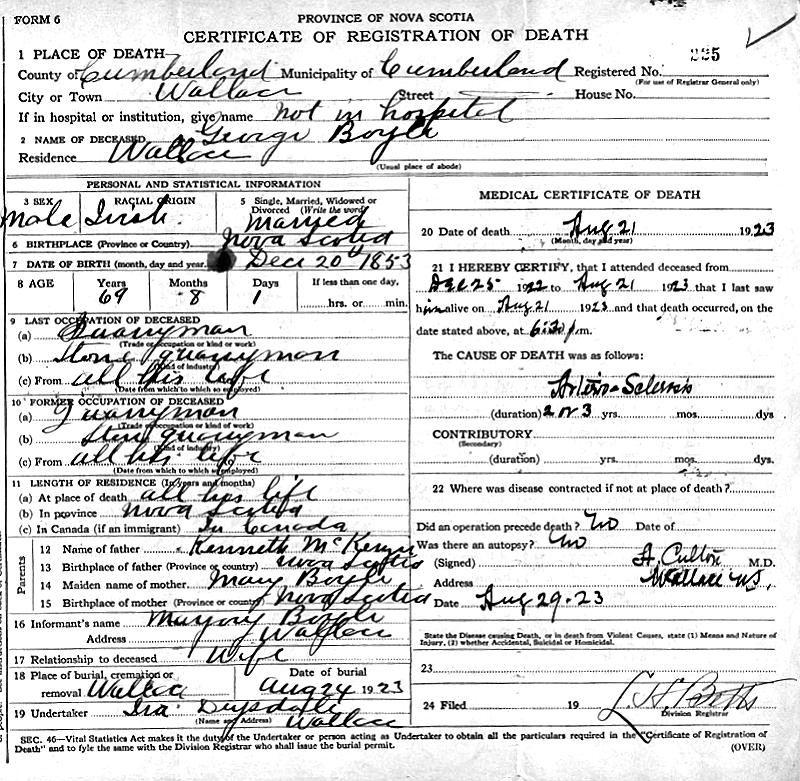 FORM 6
PROVINCE OF NOVA SCOTIA
CERTIFICATE OF REGISTRATION OF DEATH
225
1 PLACE OF DEATH
County of Cumberland Municipality of Cumberland Registered No.
(For use of Registrar General only)
City or Town Wallace Street House No.
If in hospital or institution, give name not in hospital
2 NAME OF DECEASED George Boyle
Residence Wallace
(Usual place of abode)
PERSONAL AND STATISTICAL INFORMATION
3 SEX Male
RACIAL ORIGIN Irish.
5 Single, Married, Widowed or Divorced (Write the word) Married
6 BIRTHPLACE (Province or Country) Nova Scotia
7 DATE OF BIRTH (month, day and year) Dec 20th 1853
8 AGE Years 69 Months 8 Days 1 If less than one day, hrs. or min.
9 LAST OCCUPATION OF DECEASED
(a) Quarryman
(Trade or occupation or kind of work)
(b) Stone quarryman
(Kind of industry)
(c) From all his life
(Date from which to which so employed)
10 FORMER OCCUPATION OF DECEASED
(a) Quarryman
(Trade or occupation or kind of work)
(b) Stone quarryman
(Kind of industry)
(c) From all his life
(Date from which to which so employed)
11 LENGTH OF RESIDENCE (In years and months)
(a) At place of death all his life
(b) In province Nova Scotia
(c) In Canada (if an immigrant) In Canada
Parents
12 Name of father Kenneth
13 Birthplace of father (Province or country) Nova Scotia
14 Maiden name of mother Mary Boyle
15 Birthplace of mother (Province or country) Nova Scotia
16 Informant's name Marjory Boyle
Address Wallace
17 Relationship to deceased Wife
18 Place of burial, cremation or removal Wallace
Date of burial Aug 24 1923
19 Undertaker Ira Drysdale
(Name and Address) Wallace
MEDICAL CERTIFICATE OF DEATH
20 Date of death Aug 21 1923
(Month, day and year)
21 I HEREBY CERTIFY, that I attended deceased from
Dec 25 1922 to Aug 21 1923 that I last saw
him alive on Aug 21 1923 and that death occurred, on the
date stated above, at m.
The CAUSE OF DEATH was as follows:
Arterio-Sclerosis
(duration) 2 or 3 yrs. mos. dys
CONTRIBUTORY
(Secondary)
(duration) yrs. mos. dys.
22 Where was disease contracted if not at place of death?
Did an operation precede death? No Date of
Was there an autopsy? No
(Signed) M.D.
Address Wallace N.S.
Date Aug 29-23
State the Disease causing Death, or in death from Violent Causes, state (1) Means and Nature of
Injury, (2) whether Accidental, Suicidal or Homicidal.
23
24 Filed 19
Division Registrar
SEC. 46—Vital Statistics Act makes it the duty of the Undertaker or person acting as Undertaker to obtain all the particulars required in the "Certificate of Registration of
Death" and to fyle the same with the Division Registrar who shall issue the burial permit. (OVER)